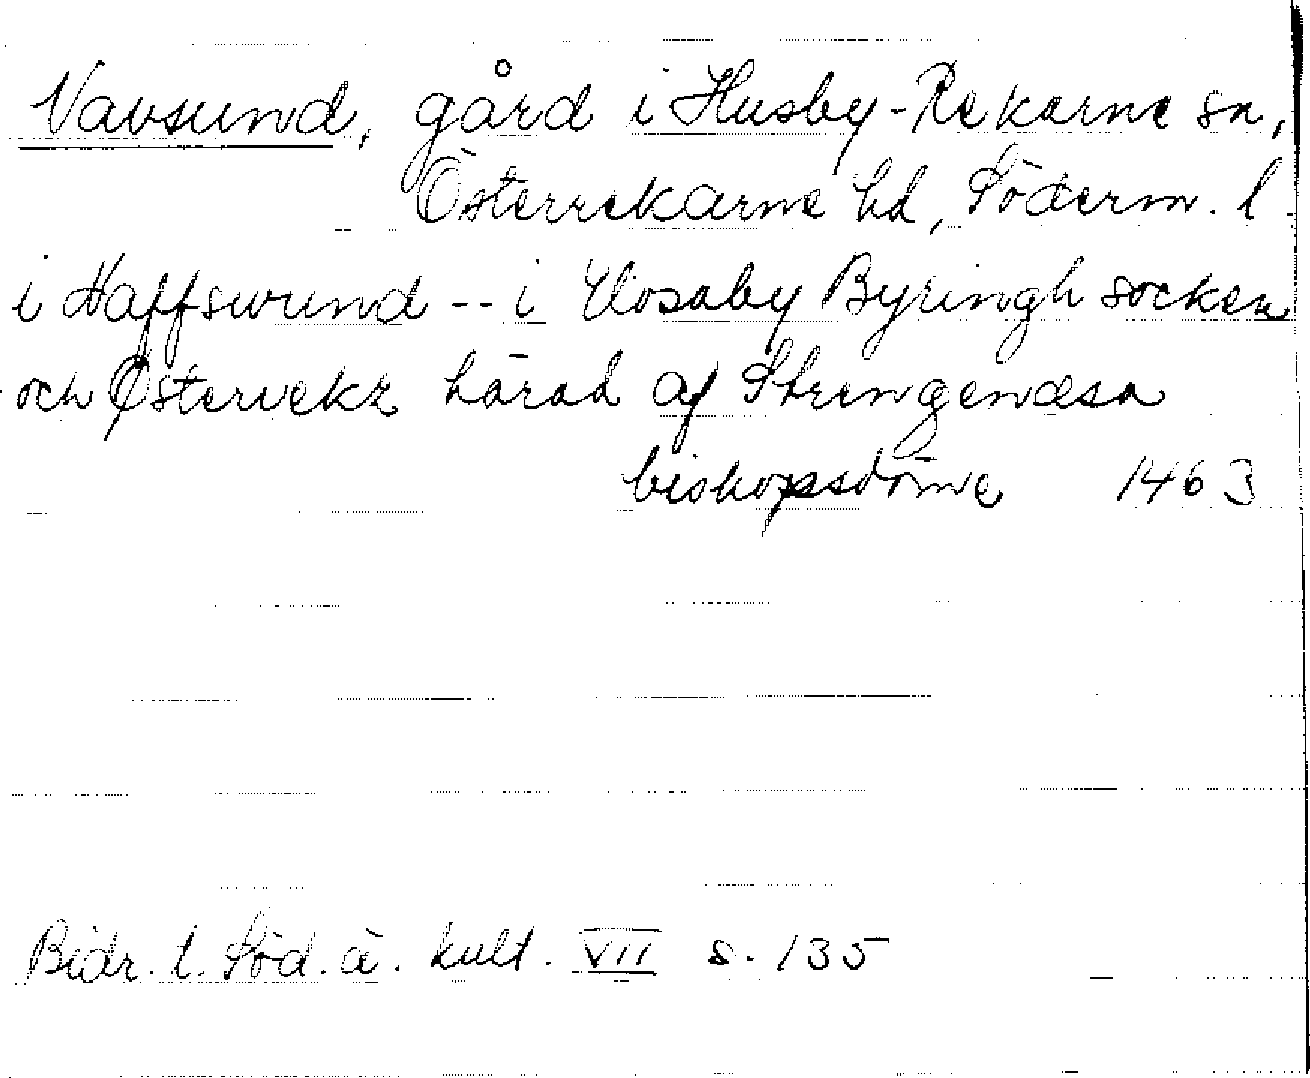 Vavsund, gård i Husby-Rekarne sn,
Österrekarne hd, Söderm. l
i Haffswund -- i Hosaby Byringh socken
och Østerrekz härad af Strengenæsa
biskopsdöme 1463
Bidr. t. Söd. ä. kult. VII s. 135